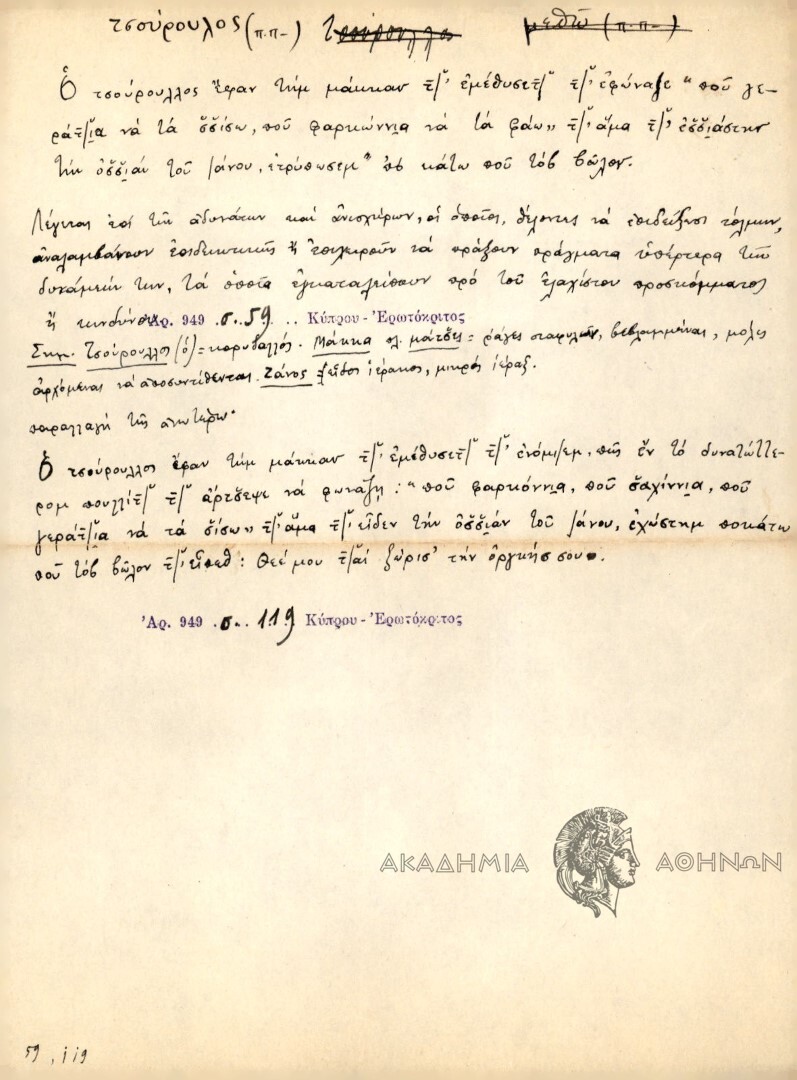 τσούρουλος (π.π-) τσούρουλλος μεθῶ (π.π-)
Ὁ τσούρουλλος ἔφαν τὴμ μάκκαν τζ̆' ἐμέθυσετζ̆ τζ̆' ἐφώναξε "ποῦ γε-
ράτζ̆ια νὰ τὰ σ̆σ̆ίσω, ποῦ φαρκώννια νὰ τὰ φάω" τζ̆' ἅμα τζ̆' ἐσ̆σ̆ιάστην
τὴν ὀσ̆σ̆ιὰν τοῦ ζάνου, ἐτρύπωσεμ κάτω ποῦ τὸβ βῶλον.
Λέγεται ἐπὶ τῶν ἀδυνάτων καὶ ἀνισχύρων, οἱ ὁποῖοι, θέλοντες νὰ ἐπιδείξωσι τόλμην,
ἀναλαμβάνουν ἐπιδεικτικῶς ἢ ἐπιχειροῦν νὰ πράξουν πράγματα ὑπέρτερα τῶν
δυνάμεών των, τὰ ὁποῖα ἐγκαταλείπουν πρὸ τοῦ ἐλαχίστου προσκόμματος
ἢ κινδύνου. Ἀρ. 949 σ. 59 Κύπρου - Ἐρωτόκριτος
Σημ. Τσούρουλλος (ὁ) = κορυδαλλός. Μάκκα πλ. μάτσ̆ες = ράγες σταφυλῶν, βεβλαμμέναι, μόλις
ἀρχόμεναι νὰ ἀποσυντίθενται. Ζάνος εἶδος ἱέρακος, μικρὸς ἱέραξ.
παραλλαγὴ τῆς ἀνωτέρω.
Ὁ τσούρουλλος ἔφαν τὴμ μάκκαν τζ̆' ἐμέθυσετζ̆ τζ̆' ἐνόμιζεμ, πῶς ἔν τὸ δυνατώττε-
ρομ πουλλίτζ̆ τζ̆' ἄρτσ̆εψε νὰ φωνάζῃ: "ποῦ φαρκόννια, ποῦ σ̆αχίννια, ποῦ
γεράτζ̆ια νὰ τὰ σ̆ίσω" τζ̆' ἅμα τζ̆' εἶδεν τὴν ὀσ̆σ̆ιὰν τοῦ ζάνου, ἐχώστημ ποκάτω
ποῦ τὸβ βῶλον τζ̆' εἶπεθ: Θεέ μου τζ̆αὶ ξώρισ' τὴν ὀργκήσ σου.
Ἀρ. 949 σ. 119 Κύπρου - Ἐρωτόκριτος
ΑΚΑΔΗΜΙΑ ΑΘΗΝΩΝ
59, 119